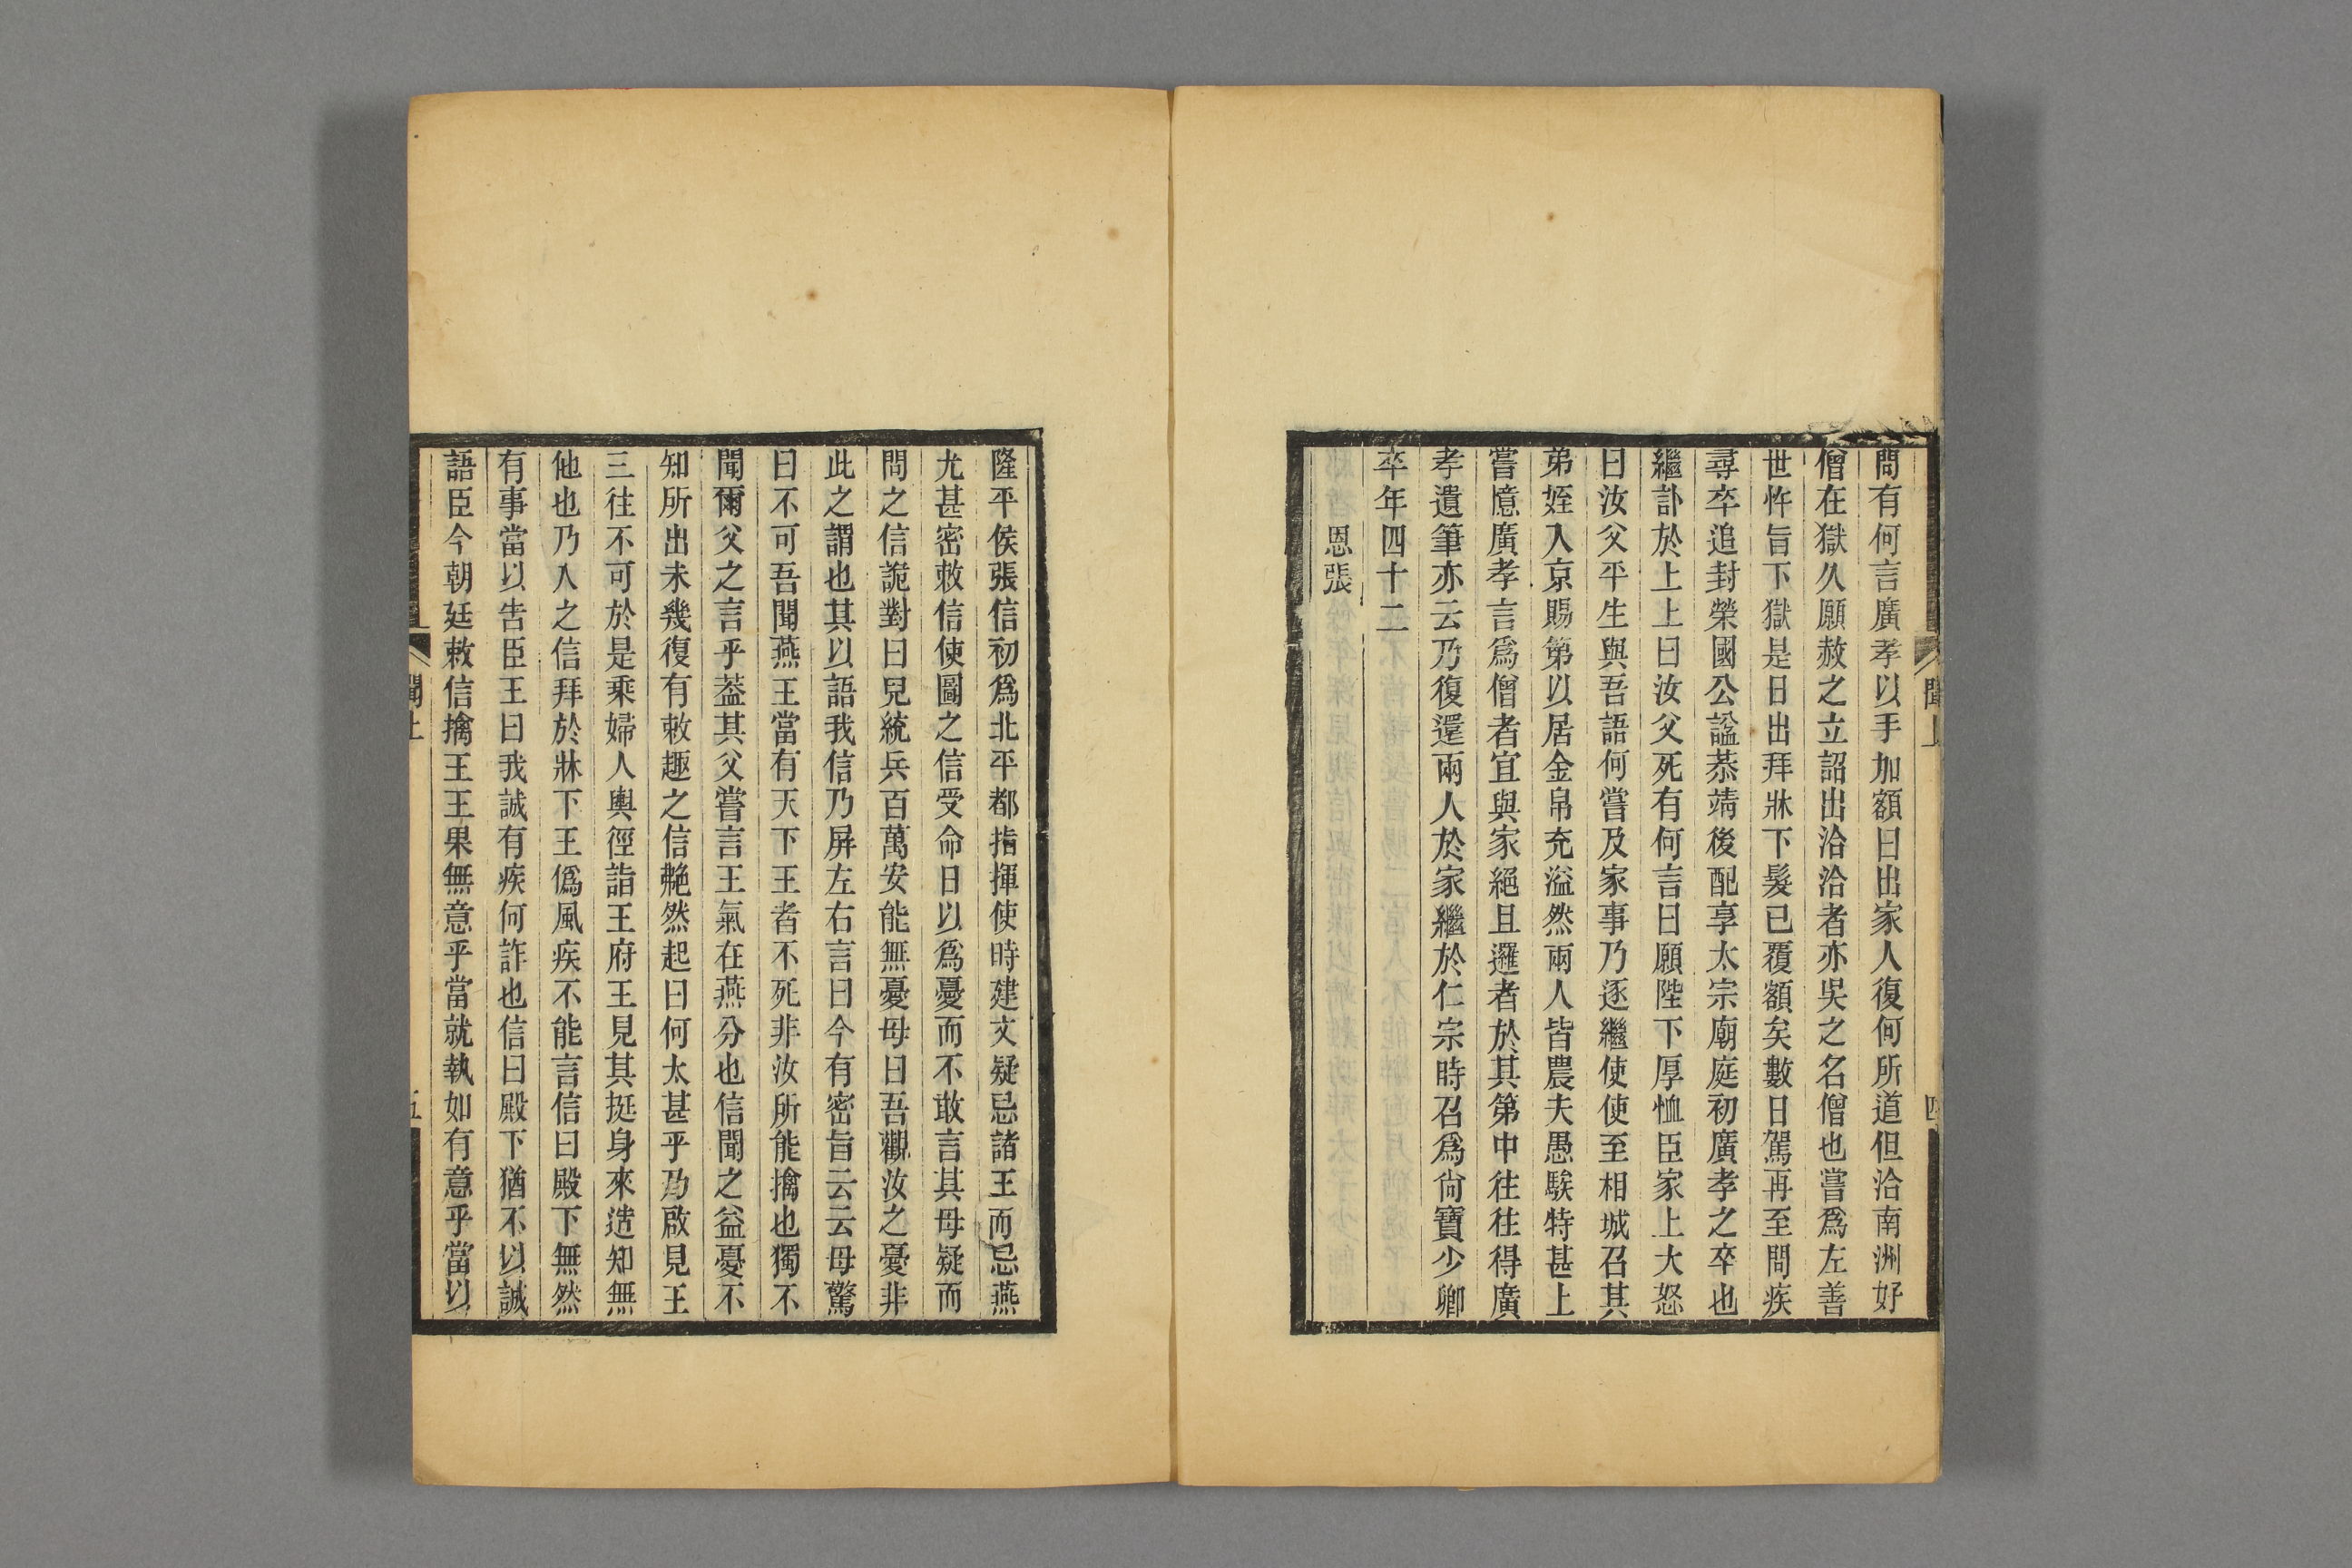 聞上
四
問有何言廣孝以手加額曰出家人復何所道但洽南洲好
僧在獄久願赦之立詔出洽洽者亦吳之名僧也嘗爲左善
世忤旨下獄是日出拜牀下髮已覆額矣數日駕再至問疾
尋卒追封榮國公諡恭靖後配享太宗廟庭初廣孝之卒也
繼訃於上上曰汝父死有何言曰願陛下厚恤臣家上大怒
曰汝父平生與吾語何嘗及家事乃逐繼使使至相城召其
弟姪入京賜第以居金帛充溢然兩人皆農夫愚騃特甚上
嘗憶廣孝言爲僧者宜與家絕且邏者於其第中往往得廣
孝遺筆亦云乃復還兩人於家繼於仁宗時召爲尚寶少卿
卒年四十二
恩張
隆平侯張信初爲北平都指揮使時建文疑忌諸王而忌燕
尤甚密敕信使圖之信受命日以爲憂而不敢言其母疑而
問之信詭對曰兒統兵百萬安能無憂母曰吾觀汝之憂非
此之謂也其以語我信乃屏左右言曰今有密旨云云母驚
曰不可吾聞燕王當有天下王者不死非汝所能擒也獨不
聞爾父之言乎葢其父嘗言王氣在燕分也信聞之益憂不
知所出未幾復有敕趣之信艴然起曰何太甚乎乃啟見王
三往不可於是乘婦人輿徑詣王府王見其挺身來造知無
他也乃入之信拜於牀下王僞風疾不能言信曰殿下無然
有事當以告臣王曰我誠有疾何詐也信曰殿下猶不以誠
語臣今朝廷敕信擒王王果無意乎當就執如有意乎當以
聞上
五